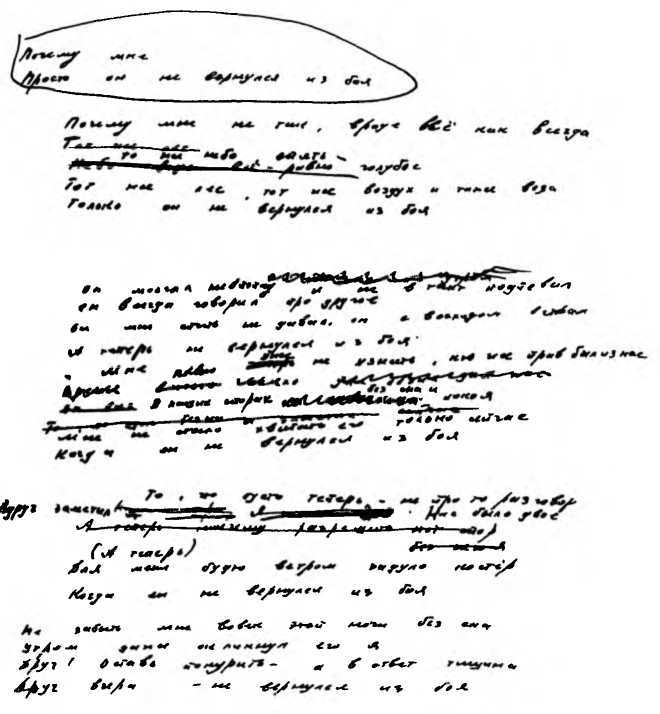 Почему мне
Просто он не вернулся из боя
Почему мне не так, вроде всё как всегда
Тот же лес
то же небо опять –
Небо всё - равно голубое
Тот же лес, тот же воздух и таже вода
Только он не вернулся из боя
он молчал невпопад и не в такт подпевал
он всегда говорил про другое
он мне спать не давал, он с восходом вставал
А теперь не вернулся из боя
Мне не узнать, кто же прав был из нас
В наших спорах без сна и покоя
Мне не стало хватать его только сейчас
Когда он не вернулся из боя
То, что пусто теперь, – не про то разговор
Вдруг заметил я Нас было двое
А теперь
(А теперь)
Для меня будто ветром задуло костёр
Когда он не вернулся из боя
Не забыть мне вовек этой ночи без сна
Утром даже окликнул его я
Друг! Оставь покурить – а в ответ тишина
Друг вчера – не вернулся из боя